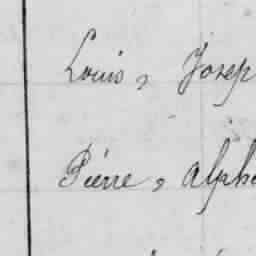 Louis, Josep
Pierre, alph